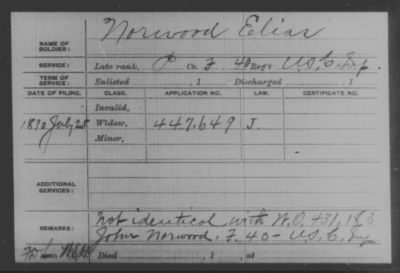 NAME OF SOLDIER: Norwood Elias
SERVICE: Late rank, P Co. F 40 Reg't U.S.C. Inf.
TERM OF SERVICE: Enlisted , 1 Discharged , 1
DATE OF FILING. CLASS. APPLICATION NO. LAW. CERTIFICATE NO.
Invalid,
1890 July 28 Widow, 447.649 J.
Minor,
ADDITIONAL SERVICES:
REMARKS: Not identical with W.O. 431,183
John Norwood. F. 40 - U.S.C. Inf
Died , 1 , at